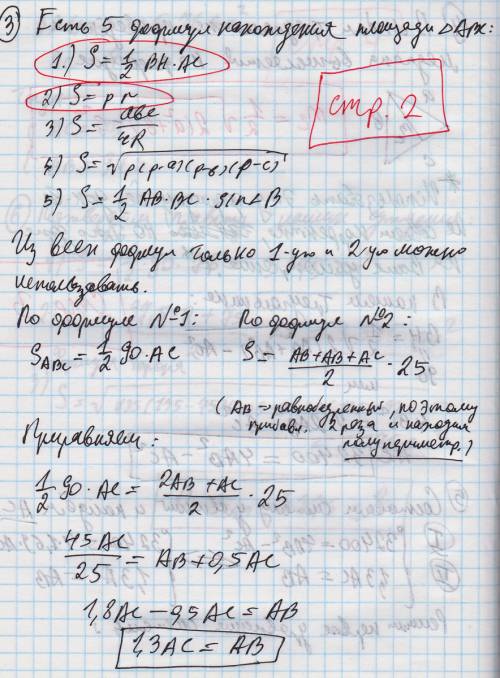 3) Есть 5 формул нахождения площади △АВС:
1.) S = 1/2 BH · AC
2) S = pr
3) S = abc/4R
4) S = √p(p-a)(p-b)(p-c)
5) S = 1/2 AB · BC · sin∠B
стр. 2
Из всех формул только 1-ую и 2-ую можно
использовать.
По формуле №1: По формуле №2:
S_ABC = 1/2 90 · AC S = (AB+AB+AC)/2 · 25
(AB – равнобедренный, поэтому
прибавл. 2 раза и находил
полупериметр.)
Приравняем:
1/2 90 · AC = (2AB + AC)/2 · 25
45AC/25 = AB + 0,5AC
1,8AC – 0,5AC = AB
1,3AC = AB